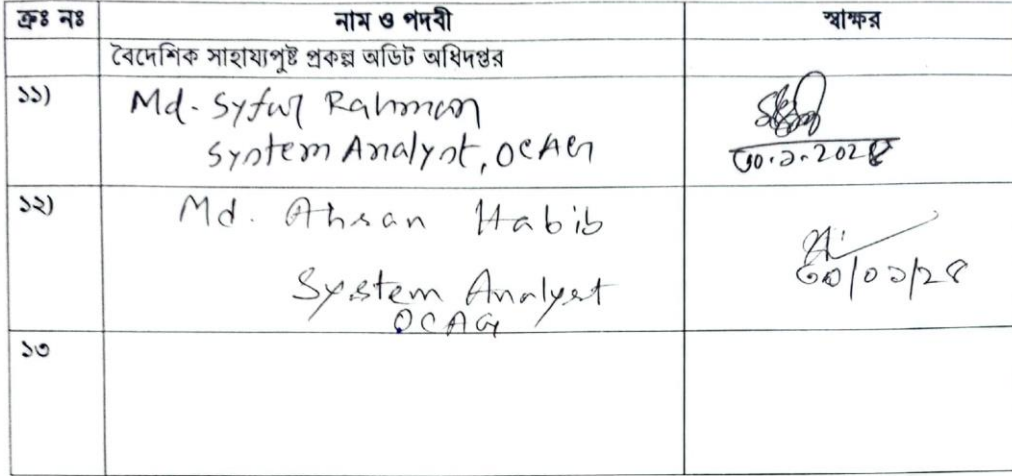 ক্রঃ নঃ নাম ও পদবী স্বাক্ষর
বৈদেশিক সাহায্যপুষ্ট প্রকল্প অডিট অধিদপ্তর
১১) Md. Syful Rahman
System Analyst, OCAG
৩০.১.২০২৪
১২) Md. Ahsan Habib
System Analyst
OCAG
৩০/০১/২৪
১৩